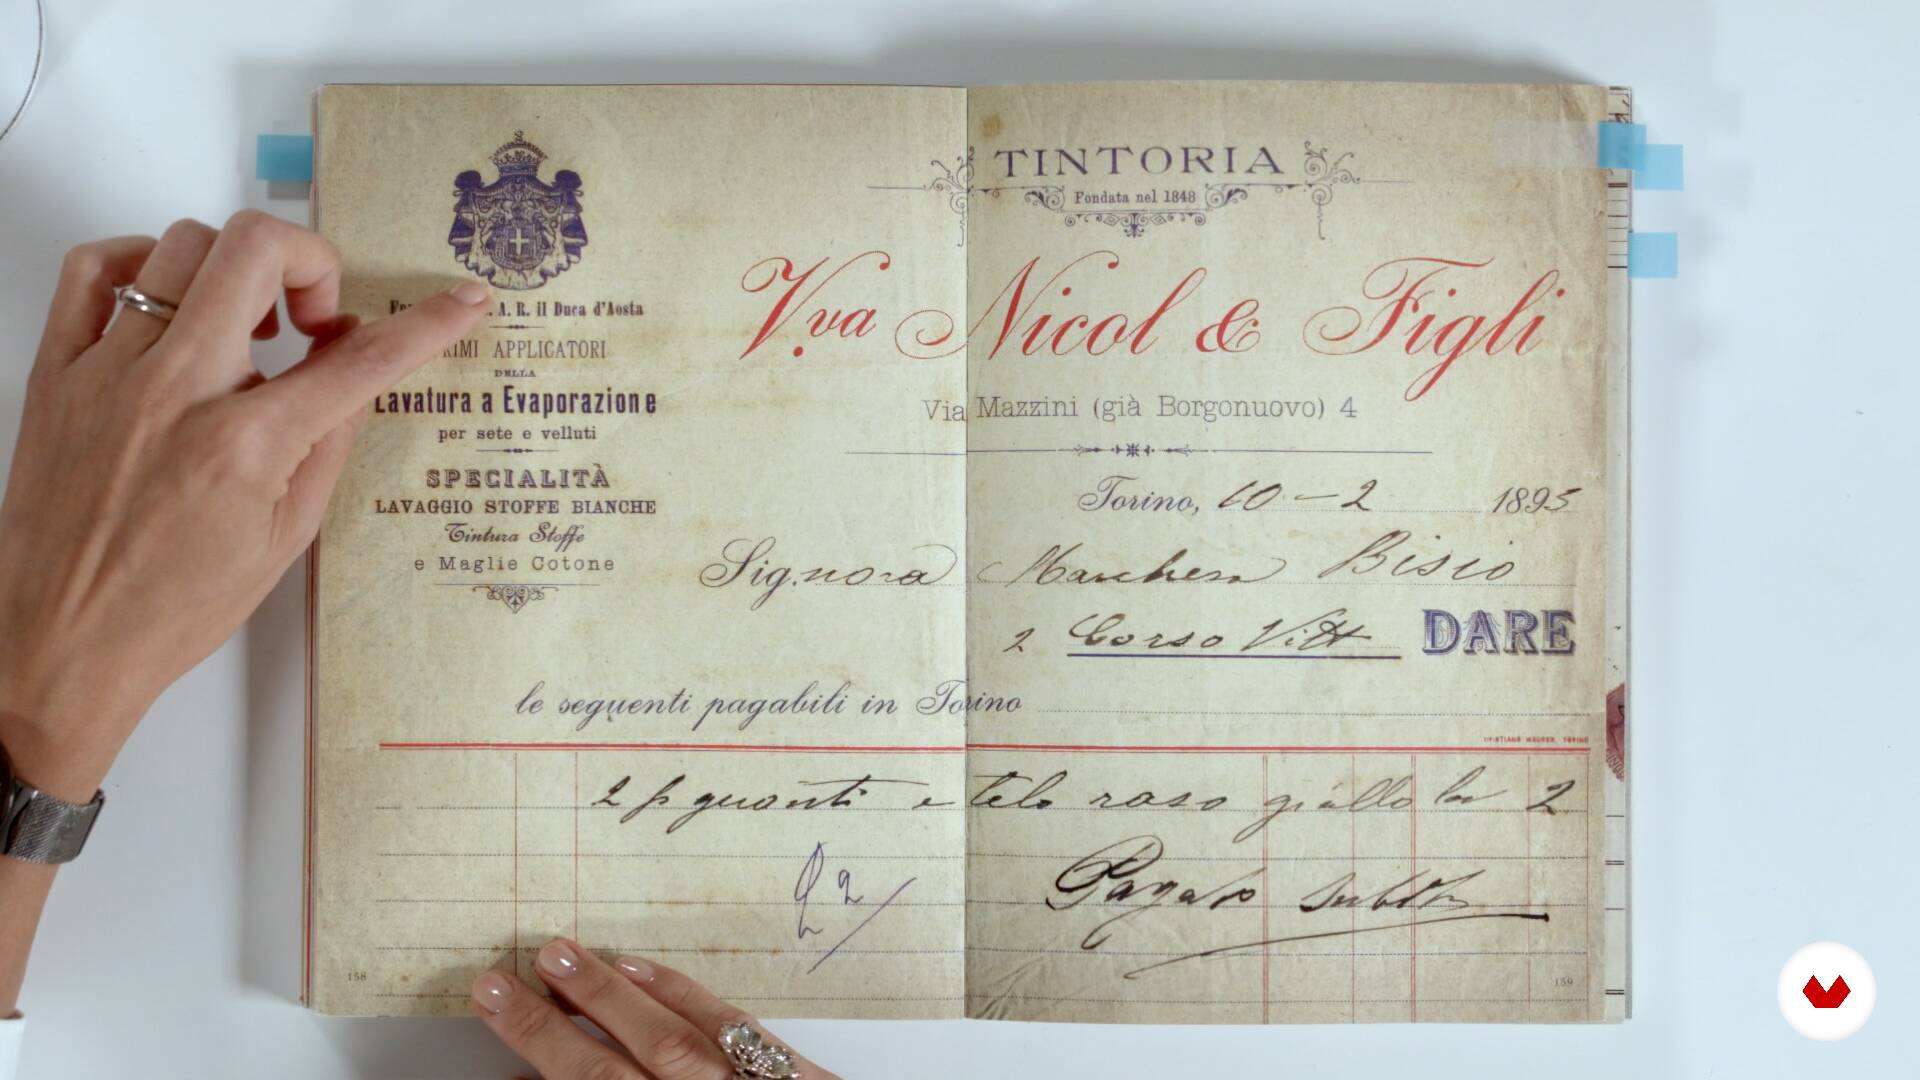 TINTORIA
Fondata nel 1848
V.va Nicol & Figli
Via Mazzini (già Borgonuovo) 4
A. R. il Duca d'Aosta
APPLICATORI
DELLA
Lavatura a Evaporazione
per sete e velluti
SPECIALITÀ
LAVAGGIO STOFFE BIANCHE
Tintura Stoffe
e Maglie Cotone
Torino, 10 - 2 1895
Signora Marchesa Bisio
2 Corso Vitt DARE
le seguenti pagabili in Torino
2 p guanti e telo raso giallo 2
£ 2
Pagato
158
159